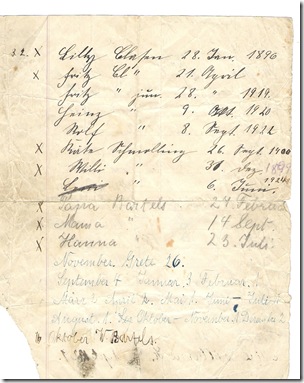 32. x Lilly Clasen 28. Jan. 1896
x Fritz Cl " 21. April
Fritz " jun. 28. " 1919.
Heinz " 9. Okt. 1920
Rolf " 8. Sept. 1922
x Käte Schmolling 26. Sept. 1900
x Willi " 31. Dez. 1899
" 6. Juni. 1924
x Papa Bartels 27 Februar
x Mama " 14 Sept.
x Hanna " 23. Juli
November Grete 26.
September 4 Januar 3 Februar 1.
März 2 April 2. Mai 1. Juni - Juli
August 1. Oktober - November 1. Dezember 2
Oktober V. Bartels.